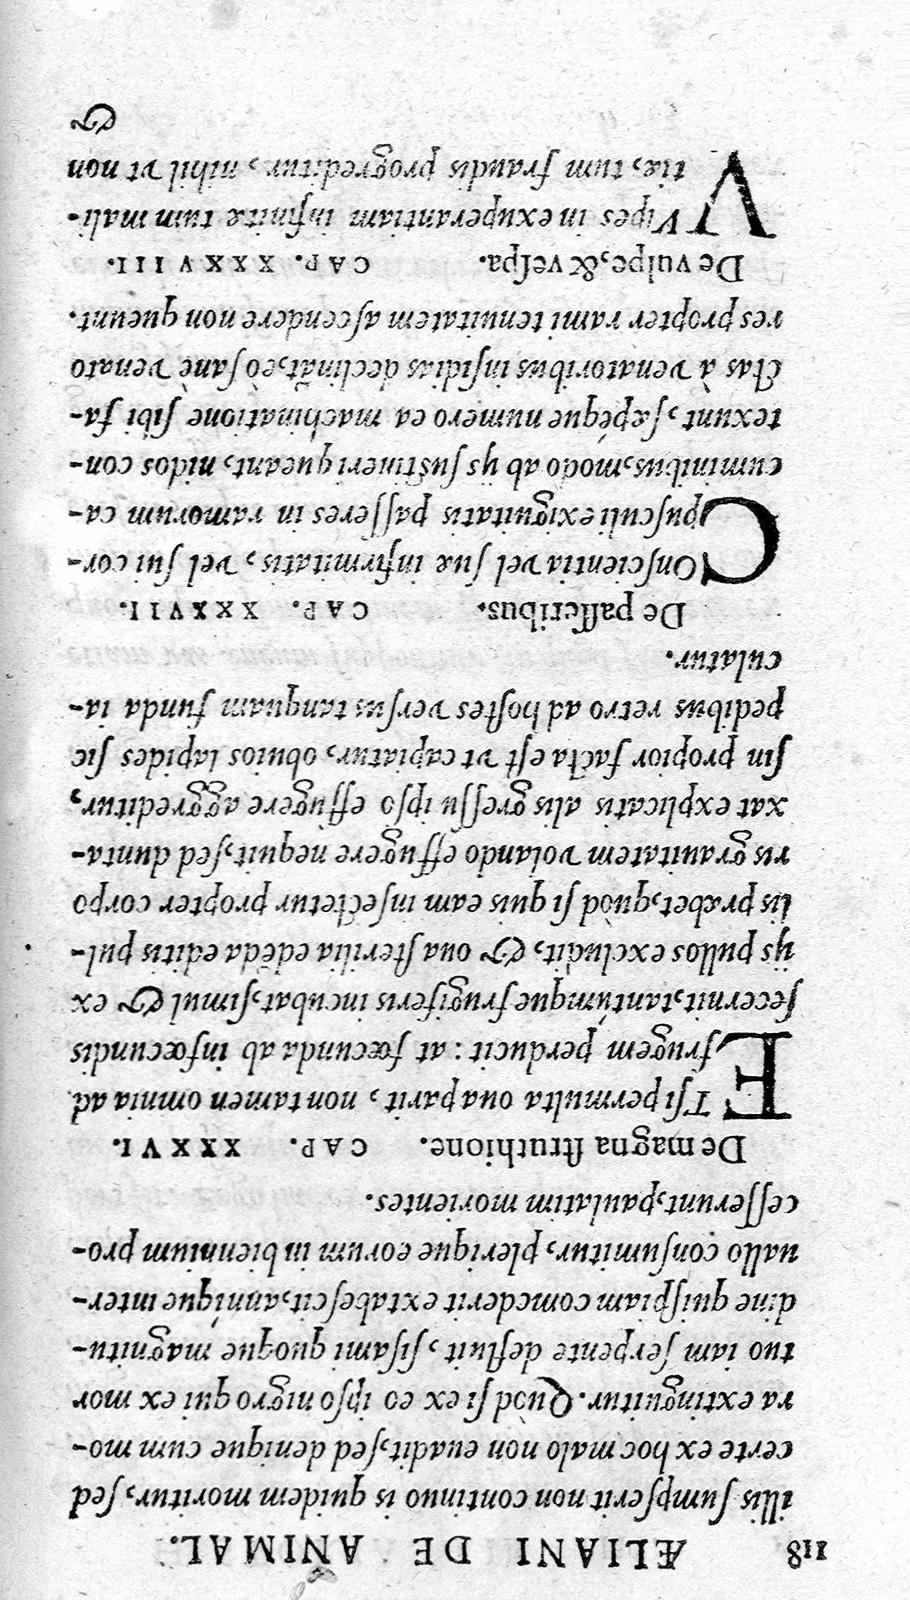 118 ÆLIANI DE ANIMAL.
illis sumpserit non continuo is quidem moritur, sed
certe ex hoc malo non euadit, sed denique cum mo-
ra extinguitur. Quòd si ex eo ipso nigro qui ex mor
tuo iam serpente defluit, sisami quoque magnitu-
dine quispiam comederit extabescit, anníque inter-
uallo consumitur, plerique eorum in biennium pro-
cesserunt, paulatim morientes.
De magna struthione. CAP. XXXVI.
ETsi permulta oua parit, non tamen omnia ad
frugem perducit: at fœcunda ab infœcundis
secernit, tantúmque frugiferis incubat, simul & ex
ijs pullos excludit, & oua sterilia edēda editis pul-
lis præbet, quòd si quis eam insectetur propter corpo
ris grauitatem volando effugere nequit, sed dunta-
xat explicatis alis gressu ipso effugere aggreditur,
sin propior facta est vt capiatur, obuios lapides sic
pedibus retro ad hostes versus tanquam funda ia-
culatur.
De passeribus. CAP. XXXVII.
COnscientia vel suæ infirmitatis, vel sui cor-
pusculi exiguitatis passeres in ramorum ca-
cuminibus, modo ab ijs sustineri queant, nidos con-
texunt, sæpéque numero ea machinatione sibi fa-
ctas à venatoribus insidias declināt, eò sanè venato
res propter rami tenuitatem ascendere non queunt.
De vulpe, & vespa. CAP. XXXVIII.
VVlpes in exuperantiam infinitæ tum mali-
tiæ, tum fraudis progreditur, nihil vt non
&